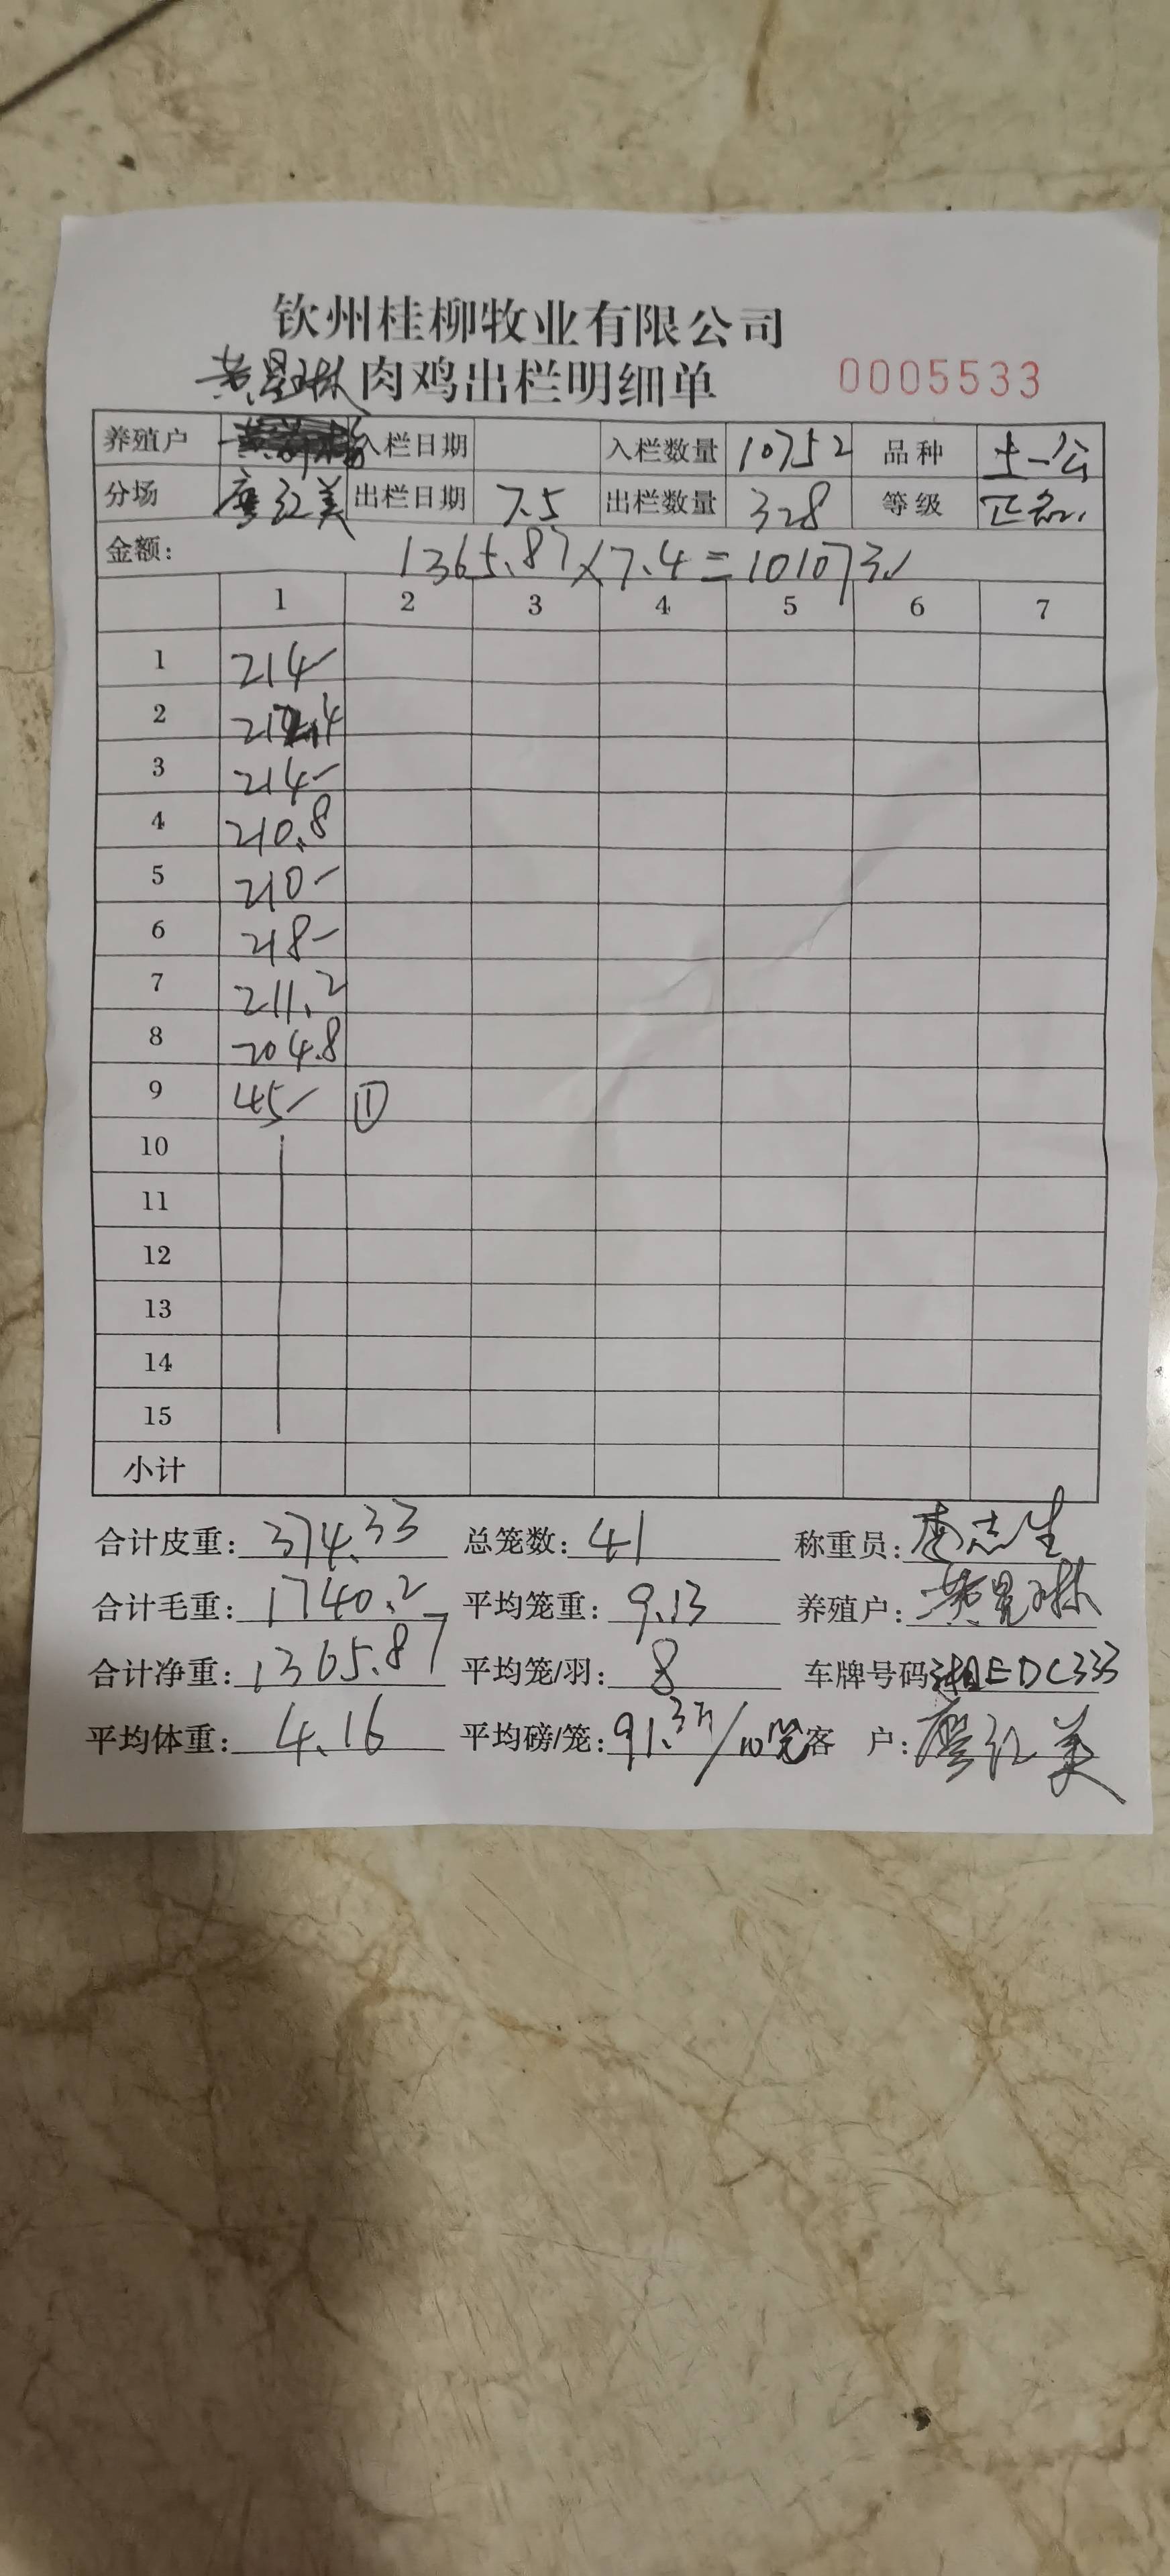 钦州桂柳牧业有限公司
肉鸡出栏明细单 0005533
养殖户 入栏日期 入栏数量 10752 品种 土一公
分场 廖红美 出栏日期 7.5 出栏数量 328 等级 正品
金额: 1365.87×7.4=10107元
1 2 3 4 5 6 7
1 214
2 212.4
3 214
4 210.8
5 210
6 218
7 211.2
8 204.8
9 45 ①
10
11
12
13
14
15
小计
合计皮重: 374.33 总笼数: 41 称重员: 李志生
合计毛重: 1740.2 平均笼重: 9.13 养殖户: 黄
合计净重: 1365.87 平均笼/羽: 8 车牌号码 湘EDC333
平均体重: 4.16 平均磅/笼: 91.3斤/10笼 客 户: 廖红美